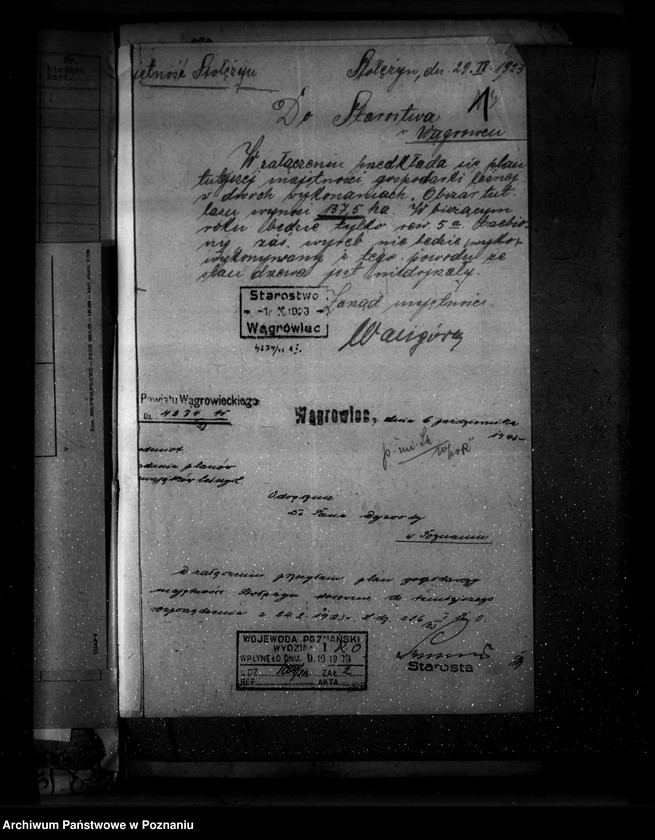 Nr.
bieżące
kart.
iętność Stołężyn
Stołężyn, dn. 29. IX. 1923
Do Starostwa
w Wągrowcu
W załączeniu przedkłada się plan
tutejszej majętności gospodarki leśnej
w dwóch wykonaniach. Obszar tut.
lasu wynosi 137,5 ha. W bieżącym
roku będzie tylko rew. 5a trzebio-
ny zaś wyręb nie będzie wyko-
wykonywany z tego powodu że
stan drzewa jest niedojrzały.
Zarząd majętności
Waligóra
Starostwo
1 X. 1923
Wągrowiec
4274/23
Powiatu Wągrowieckiego
Dz. 4274
23
Wągrowiec, dnia 6 października
1923
dmiot
danie planów
majątków leśnych
Odręcznie
Do Pana Wojewody
w Poznaniu
W załączeniu przesyłam plan gospodarczy
majętności Stołężyn stosownie do tamtejszego
rozporządzenia z 24.2.1923 r. L.dz. 216
WOJEWODA POZNAŃSKI
WYDZIAŁ I R O
WPŁYNĘŁO DNIA 9. 10 1923
L. DZ. ZAŁ. 2
REF. AKTA
Starosta
Archiwum Państwowe w Poznaniu